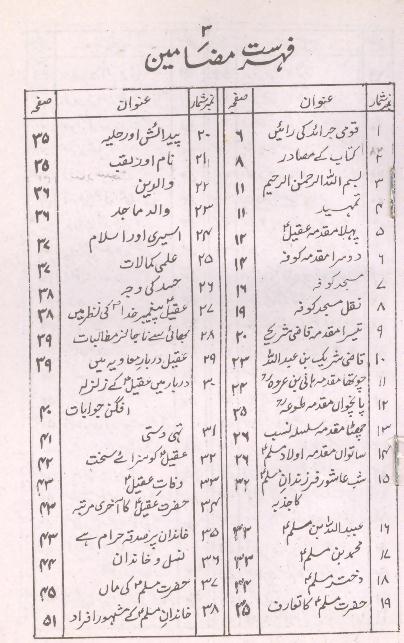 ۳
فہرست مضامین
نمبر شمار عنوان صفحہ
۱ قومی جرائد کی رائیں ۶
۲ کتاب کے مصادر ۸
۳ بسم اللہ الرحمٰن الرحیم ۱۱
۴ تمہید ۱۱
۵ پہلا مقدمہ عقیلؑ ۱۲
۶ دوسرا مقدمہ کوفہ ۱۴
۷ مسجد کوفہ ۱۶
۸ نقل مسجد کوفہ ۱۹
۹ تیسرا مقدمہ قاضی شریح ۲۰
۱۰ قاضی شریک بن عبداللہ ۲۳
۱۱ چوتھا مقدمہ ہانی بن عروہؓ ۲۴
۱۲ پانچواں مقدمہ طوعہؓ ۲۵
۱۳ چھٹا مقدمہ سلسلہ نسب ۲۶
۱۴ ساتواں مقدمہ اولاد مسلمؑ ۲۶
۱۵ شب عاشور فرزندان مسلمؑ ۳۲
کا جذبہ
۱۶ عبیداللہ بن مسلمؑ ۳۳
۱۷ محمد بن مسلمؑ ۳۳
۱۸ دختر مسلمؑ ۳۴
۱۹ حضرت مسلمؑ کا تعارف ۳۵
نمبر شمار عنوان صفحہ
۲۰ پیدائش اور حلیہ ۳۵
۲۱ نام اور لقب ۳۵
۲۲ والدین ۳۶
۲۳ والد ماجد ۳۶
۲۴ اسیری اور اسلام ۳۷
۲۵ علمی کمالات ۳۷
۲۶ حسد کی وجہ ۳۸
۲۷ عقیلؑ پیغمبر خداؐ کی نظر میں ۳۸
۲۸ بھائی سے ناجائز مطالبات ۳۹
۲۹ عقیل دربار معاویہ میں ۳۹
۳۰ دربار میں عقیلؑ کے زلزلہ
افگن جوابات ۴۰
۳۱ تہی دستی ۴۱
۳۲ عقیلؑ کو سزائے سخت ۴۲
۳۳ وفات عقیلؑ ۴۳
۳۴ حضرت عقیلؑ کا آخری مرتبہ ۴۳
۳۵ خاندان پر صدقہ حرام ہے ۴۳
۳۶ نسل و خاندان ۴۴
۳۷ حضرت مسلمؑ کی ماں ۴۵
۳۸ خاندان مسلمؑ کے مشہور افراد ۵۱